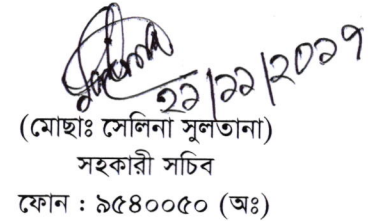 ২১/১১/২০১৭
(মোছাঃ সেলিনা সুলতানা)
সহকারী সচিব
ফোন : ৯৫৪০০৫০ (অঃ)